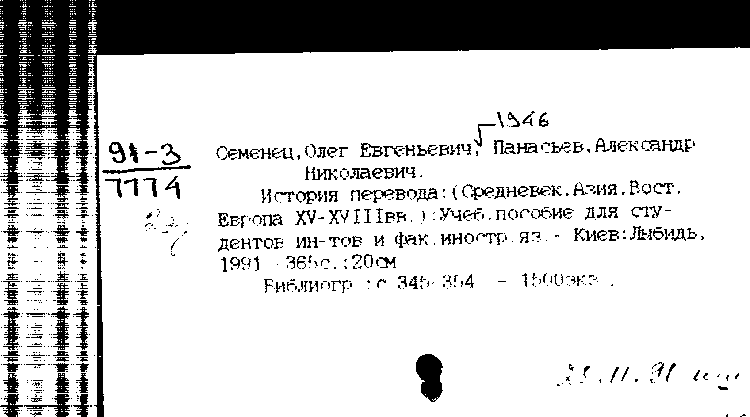 1946
91-3
7774
Семенец,Олег Евгеньевич, Панасьев,Александр
Николаевич.
История перевода:(Средневек.Азия.Вост.
Европа XV-XVIIIвв.):Учеб.пособие для сту-
дентов ин-тов и фак.иностр.яз.- Киев:Лыбидь,
1991 365с.:20см
Библиогр.:с 345-354 - 1500экз.
25.11.91